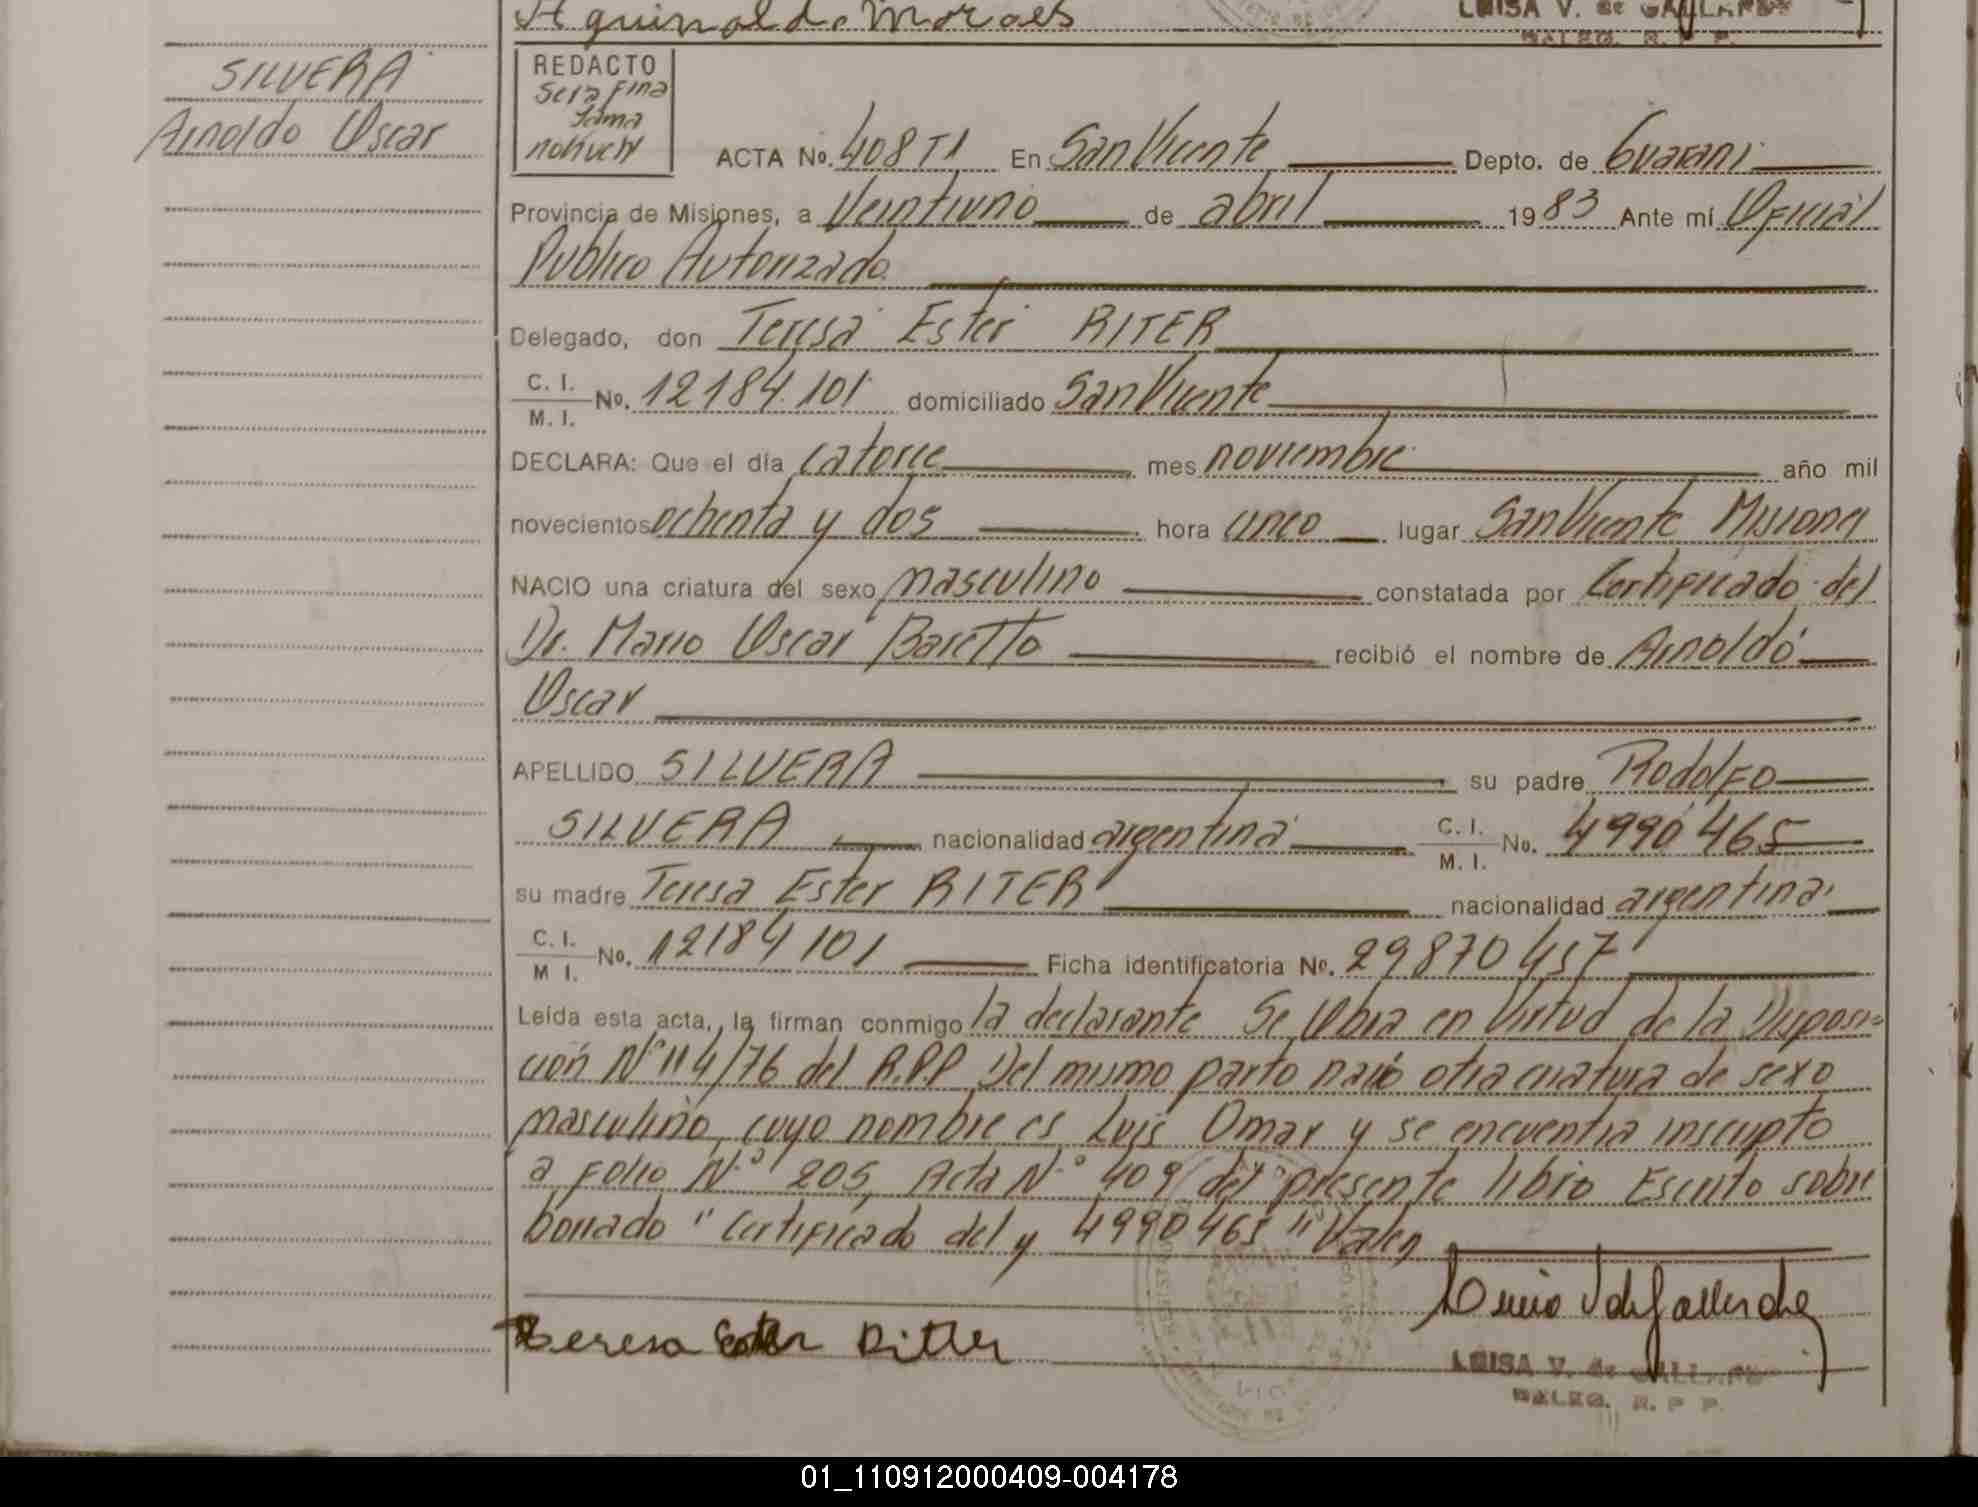 Aguinaldo Moraes
LUISA V. de GALLARDO
DALEG. R. P. P.
SILVERA
Arnoldo Oscar
REDACTO
Serafina
Tama
ACTA No. 408 TI En San Vicente Depto. de Guarani
Provincia de Misiones, a Veintiuno de abril 1983 Ante mí Oficial
Publico Autorizado
Delegado, don Teresa Ester RITER
C. I.
M. I.
No. 12184.101 domiciliado San Vicente
DECLARA: Que el día catorce mes noviembre año mil
novecientos ochenta y dos hora cinco lugar San Vicente Misiones
NACIO una criatura del sexo masculino constatada por Certificado del
Dr. Mario Oscar Baretto recibió el nombre de Arnoldo
Oscar
APELLIDO SILVERA su padre Rodolfo
SILVERA nacionalidad argentina C. I. M. I. No. 4990465
su madre Teresa Ester RITER nacionalidad argentina
C. I.
M I.
No. 12184101 Ficha identificatoria No. 29870457
Leída esta acta, la firman conmigo la declarante Se Obra en Virtud de la Disposi-
ción Nº 114/76 del R.P.P. Del mismo parto nació otra criatura de sexo
masculino, cuyo nombre es Luis Omar y se encuentra inscripto
a folio Nº 205, Acta Nº 409 del presente libro Escrito sobre
borrado "Certificado del y 4990465" Valen
Teresa Ester Ritter
LUISA V. de GALLARDO
DALEG. R. P P.
01_110912000409-004178